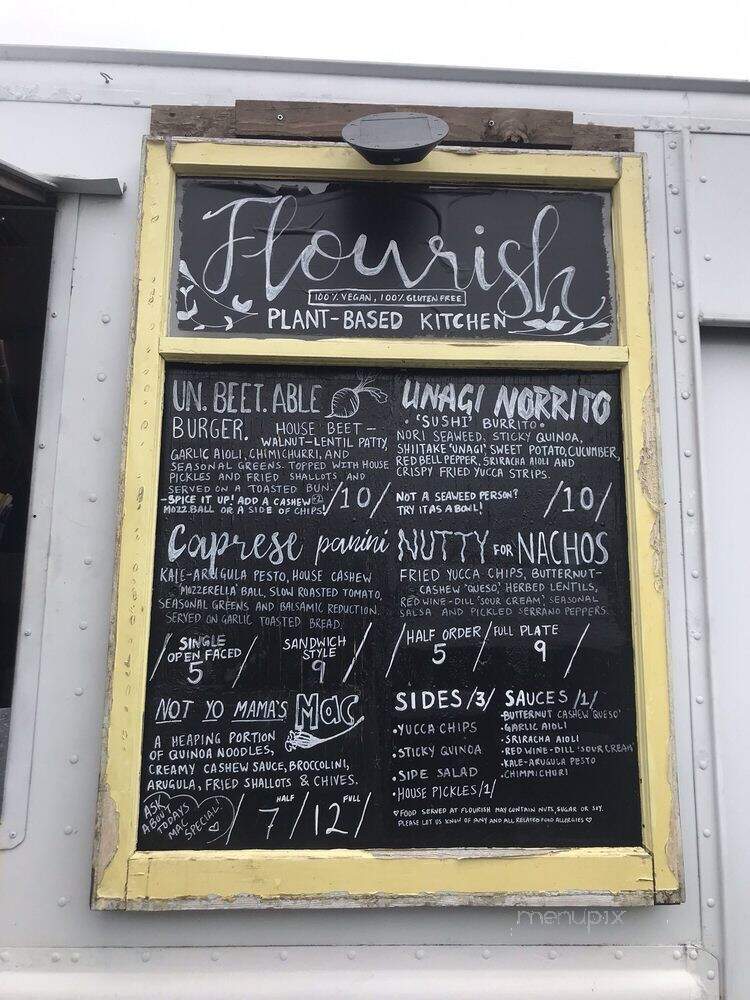 Flourish
100% VEGAN, 100% GLUTEN FREE
PLANT-BASED KITCHEN
UN. BEET. ABLE
BURGER. HOUSE BEET-
WALNUT-LENTIL PATTY,
GARLIC AIOLI, CHIMICHURRI, AND
SEASONAL GREENS. TOPPED WITH HOUSE
PICKLES AND FRIED SHALLOTS AND
SERVED ON A TOASTED BUN.
-SPICE IT UP! ADD A CASHEW
MOZZ.BALL OR A SIDE OF CHIPS!
/10/
UNAGI NORRITO
• 'SUSHI' BURRITO •
NORI SEAWEED, STICKY QUINOA,
SHIITAKE 'UNAGI', SWEET POTATO, CUCUMBER,
RED BELL PEPPER, SRIRACHA AIOLI AND
CRISPY FRIED YUCCA STRIPS.
NOT A SEAWEED PERSON?
TRY IT AS A BOWL!
/10/
Caprese panini
KALE-ARUGULA PESTO, HOUSE CASHEW
'MOZZERELLA' BALL, SLOW ROASTED TOMATO,
SEASONAL GREENS AND BALSAMIC REDUCTION.
SERVED ON GARLIC TOASTED BREAD.
/ SINGLE OPEN FACED 5 / SANDWICH STYLE 9 /
NUTTY FOR NACHOS
FRIED YUCCA CHIPS, BUTTERNUT-
CASHEW 'QUESO', HERBED LENTILS,
RED WINE-DILL 'SOUR CREAM', SEASONAL
SALSA AND PICKLED SERRANO PEPPERS.
/ HALF ORDER 5 / FULL PLATE 9 /
NOT YO MAMA'S MAC
A HEAPING PORTION
OF QUINOA NOODLES,
CREAMY CASHEW SAUCE, BROCCOLINI,
ARUGULA, FRIED SHALLOTS & CHIVES.
ASK
ABOUT
TODAYS
MAC
SPECIAL!
/ HALF 7 / FULL 12 /
SIDES /3/
•YUCCA CHIPS
•STICKY QUINOA
•SIDE SALAD
•HOUSE PICKLES /1/
SAUCES /1/
•BUTTERNUT CASHEW 'QUESO'
•GARLIC AIOLI
•SRIRACHA AIOLI
•RED WINE-DILL 'SOUR CREAM'
•KALE-ARUGULA PESTO
•CHIMMICHURI
♡FOOD SERVED AT FLOURISH MAY CONTAIN NUTS, SUGAR OR SOY.
PLEASE LET US KNOW OF ANY AND ALL RELATED FOOD ALLERGIES♡
menupix